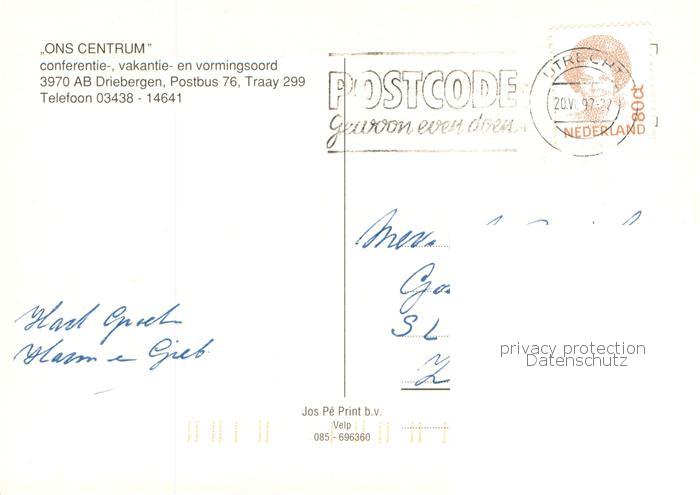 „ONS CENTRUM”
conferentie-, vakantie- en vormingsoord
3970 AB Driebergen, Postbus 76, Traay 299
Telefoon 03438 - 14641
POSTCODE
gewoon even doen
UTRECHT
20.VI.97
80ct
NEDERLAND
Harm en
privacy protection
Datenschutz
Jos Pé Print b.v.
Velp
085 - 696360